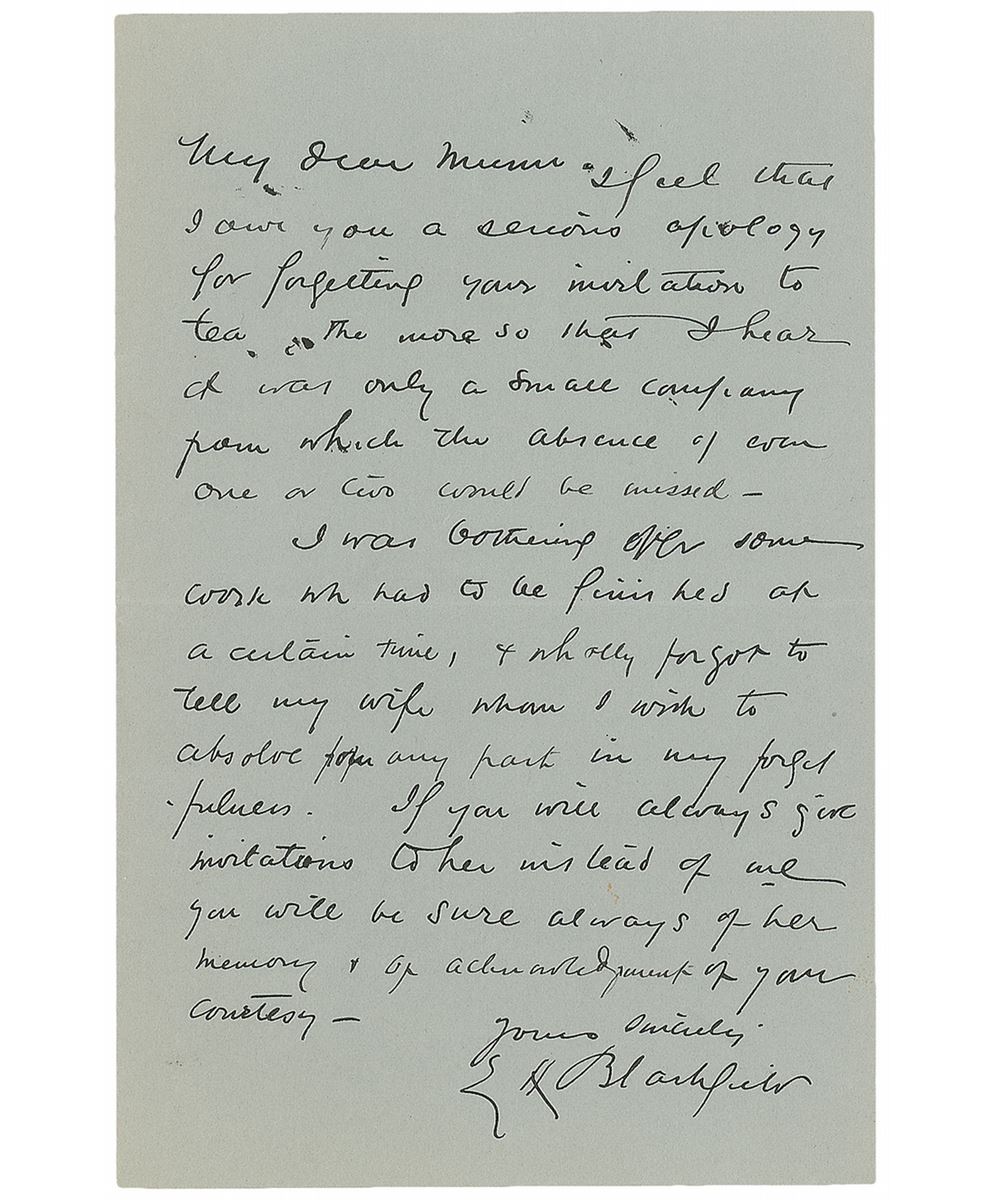 My dear Munn . I feel that
I owe you a serious apology
for forgetting your invitation to
tea , the more so that I hear
it was only a small company
from which the absence of even
one or two would be missed –
I was bothering over some
work wh had to be finished at
a certain time, & wholly forgot to
tell my wife whom I wish to
absolve from any part in my forget
-fulness. If you will always give
invitations to her instead of me
you will be sure always of her
memory & of acknowledgment of your
courtesy –
Yours sincerely
E H Blashfield